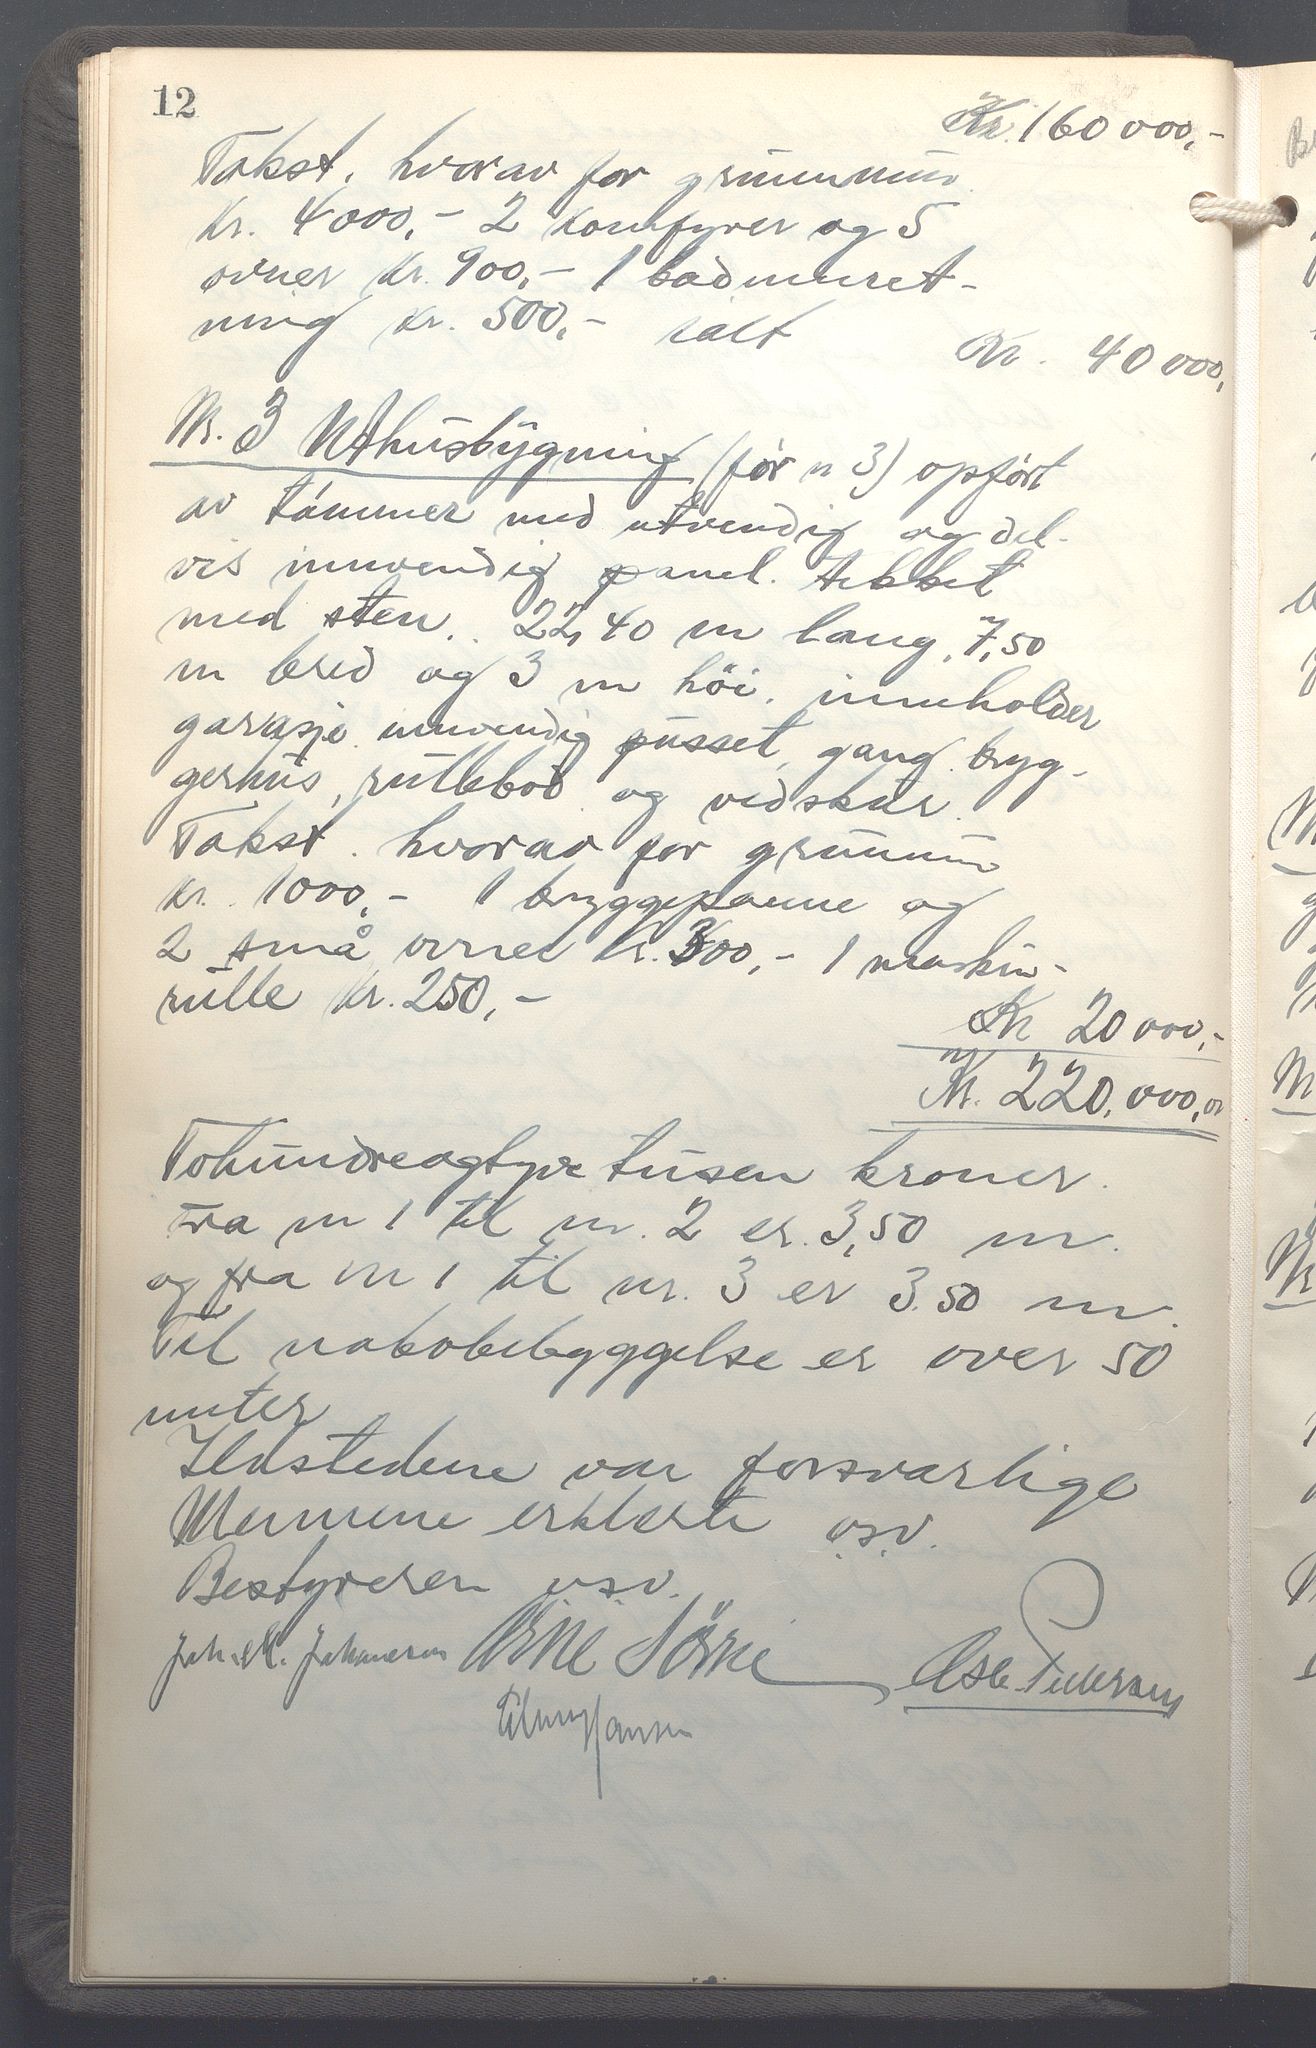 12
Kr. 160 000,-
Takst. hvorav for grunnmur
Kr. 4000,- 2 komfyrer og 5
ovner Kr. 900,- 1 badinnret-
ning Kr. 500,- ialt
Kr. 40 000,
Nr. 3 Uthusbygning (før nr 3) opført
av tømmer med utvendig og del-
vis innvendig panel. tekket
med sten. 22,40 m lang, 7,50
m bred og 3 m höi. inneholder
garasje innvendig pusset, gang bryg-
gerhus, rullebod og vedskur.
Takst. hvorav for grunnmur
Kr. 1000,- 1 bryggepanne og
2 små ovner Kr. 300,- 1 maskin-
rulle Kr. 250,-
Kr 20 000,-
Kr. 220.000,00
Tohundreogtyve tusen kroner.
Fra nr 1 til nr. 2 er. 3,50 m.
og fra nr 1 til nr. 3 er 3.50 m.
Til nabobebyggelse er over 50
meter
Ildstedene var forsvarlige
Mennene erklærte o.s.v.
Bestyreren o.s.v.
Joh. M. Johannesen Arne Sörne Osc. Pedersen
Hansen